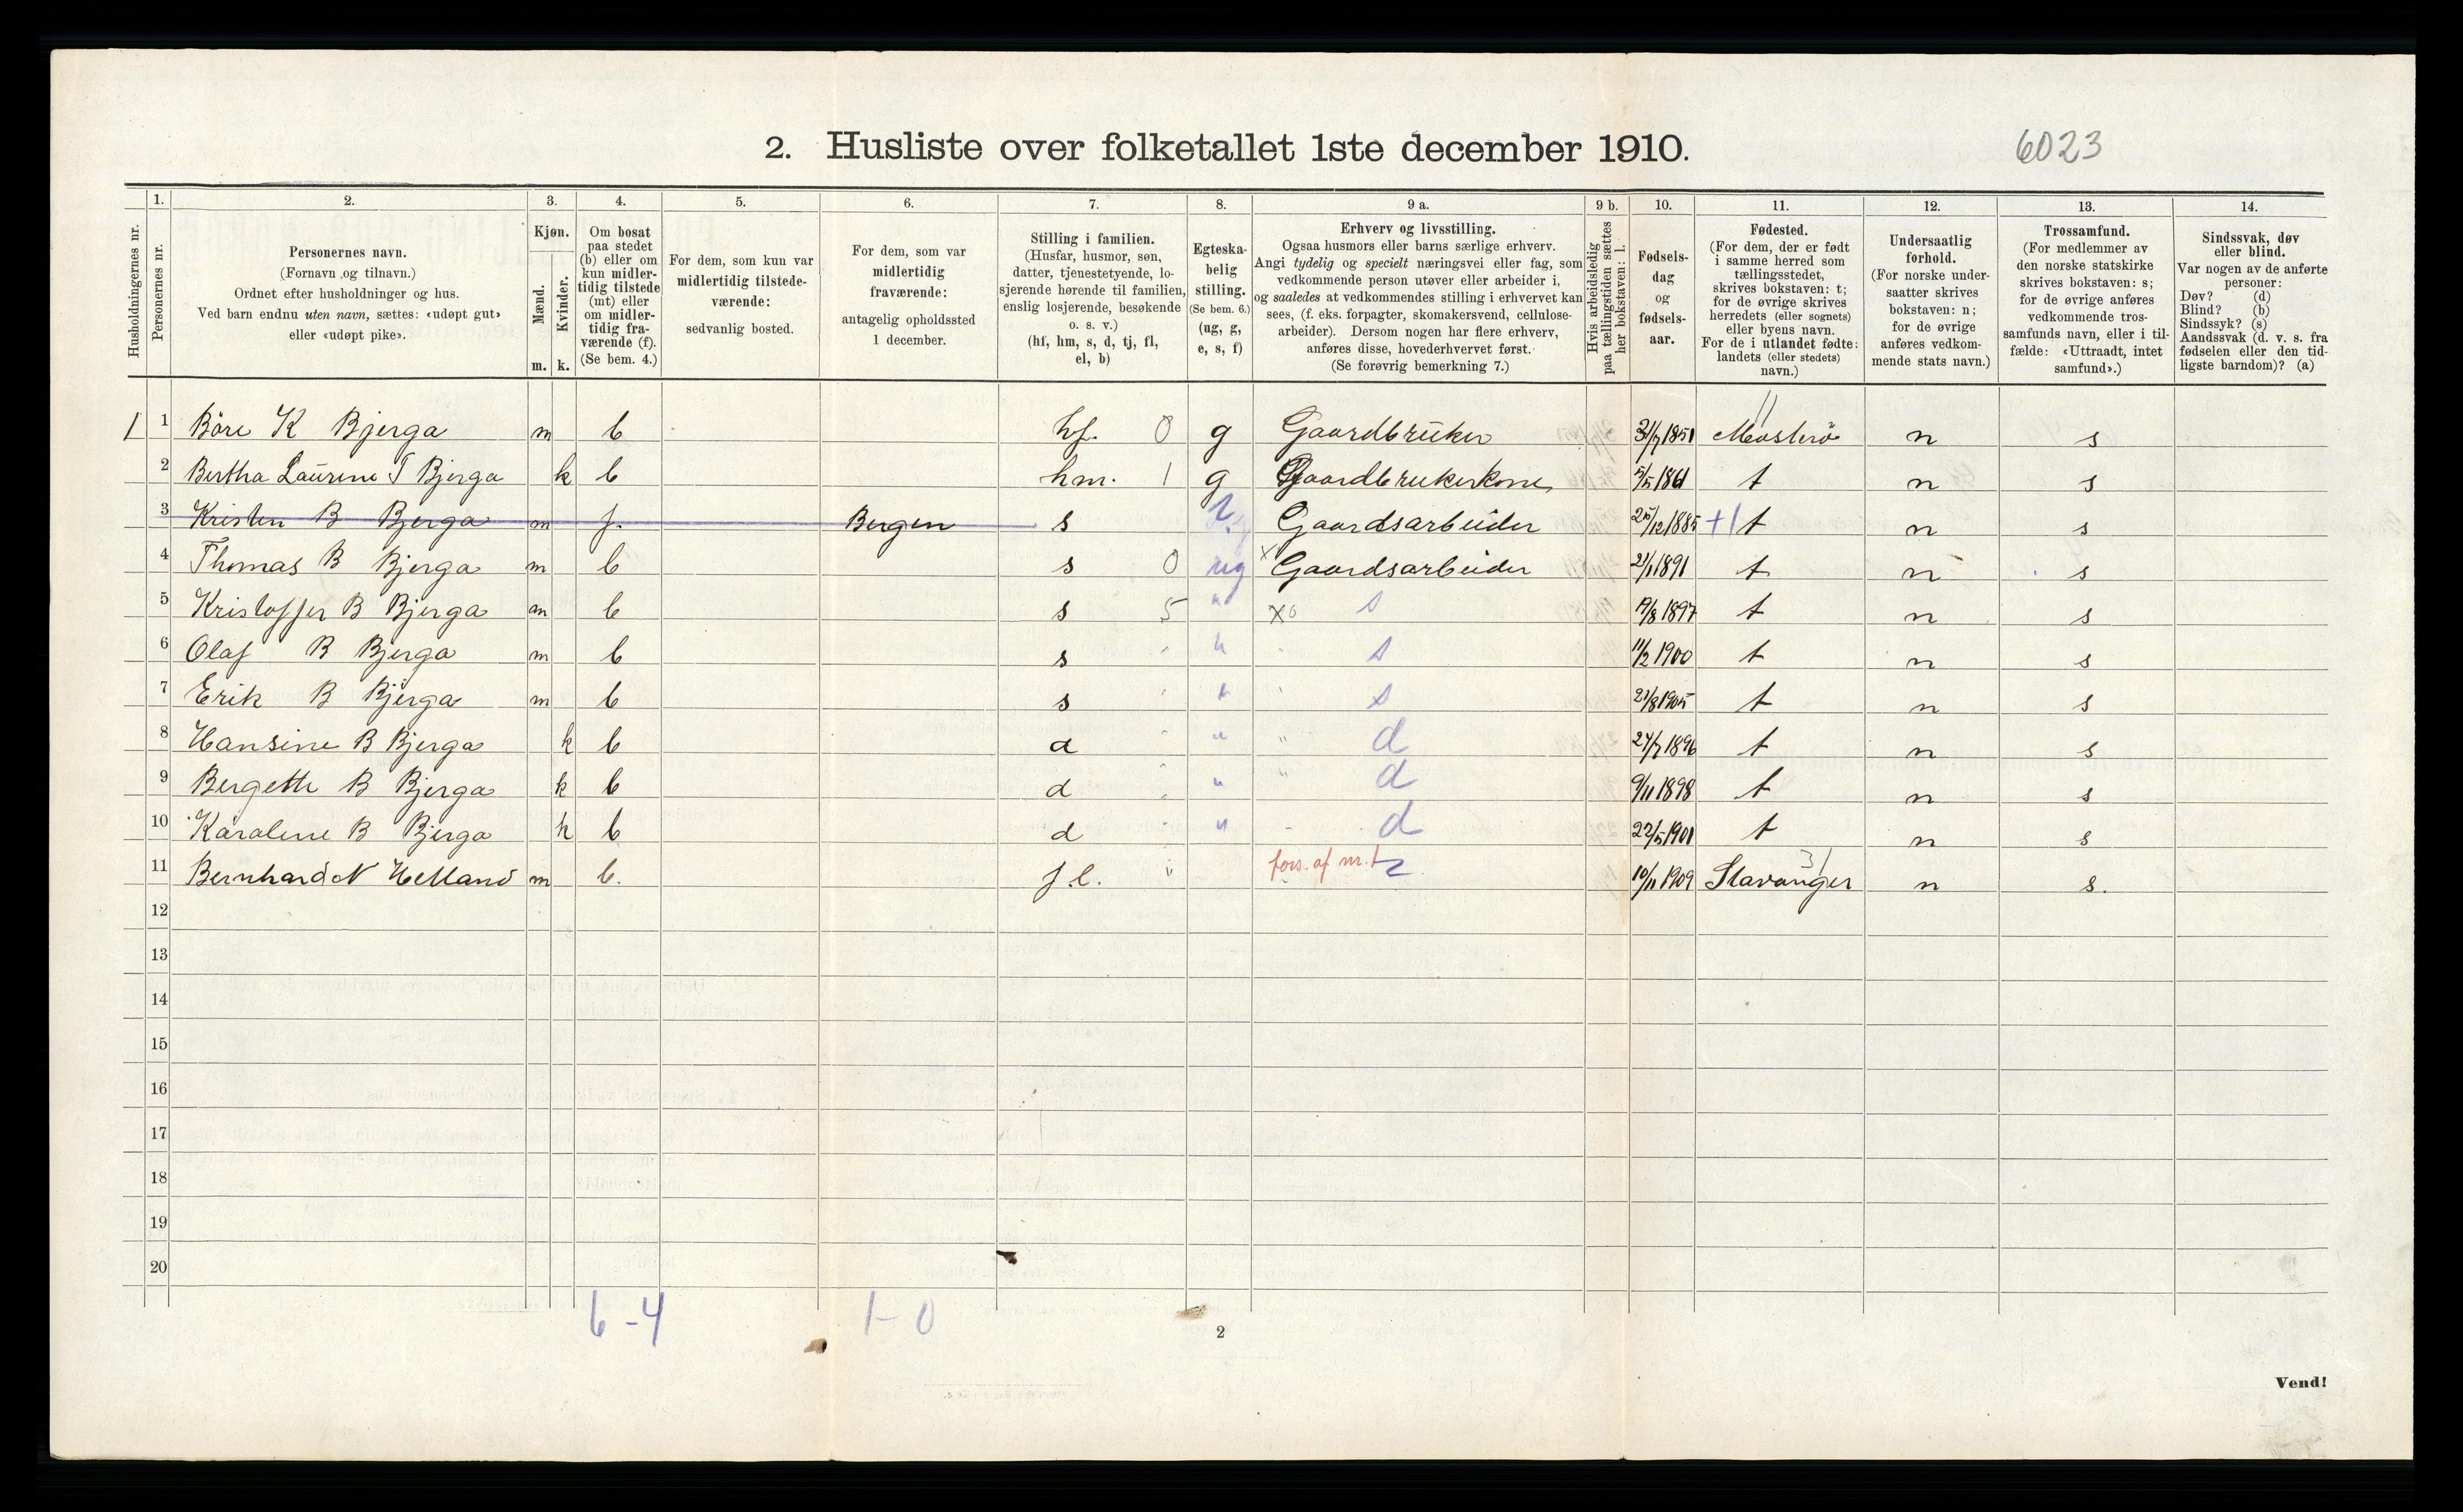 2. Husliste over folketallet 1ste december 1910.
6023
Husholdningernes nr.
1.
Personernes nr.
2.
Personernes navn.
(Fornavn og tilnavn.)
Ordnet efter husholdninger og hus.
Ved barn endnu uten navn, sættes: «udøpt gut»
eller «udøpt pike».
3.
Kjøn.
Mænd.
Kvinder.
m. k.
4.
Om bosat
paa stedet
(b) eller om
kun midler-
tidig tilstede
(mt) eller
om midler-
tidig fra-
værende (f).
(Se bem. 4.)
5.
For dem, som kun var
midlertidig tilstede-
værende:
sedvanlig bosted.
6.
For dem, som var
midlertidig
fraværende:
antagelig opholdssted
1 december.
7.
Stilling i familien.
(Husfar, husmor, søn,
datter, tjenestetyende, lo-
sjerende hørende til familien,
enslig losjerende, besøkende
o. s. v.)
(hf, hm, s, d, tj, fl,
el, b)
8.
Egteska-
belig
stilling.
(Se bem. 6.)
(ug, g,
e, s, f)
9 a.
Erhverv og livsstilling.
Ogsaa husmors eller barns særlige erhverv.
Angi tydelig og specielt næringsvei eller fag, som
vedkommende person utøver eller arbeider i,
og saaledes at vedkommendes stilling i erhvervet kan
sees, (f. eks. forpagter, skomakersvend, cellulose-
arbeider). Dersom nogen har flere erhverv,
anføres disse, hovederhvervet først.
(Se forøvrig bemerkning 7.)
9 b.
Hvis arbeidsledig
paa tællingstiden sættes
her bokstaven: l.
10.
Fødsels-
dag
og
fødsels-
aar.
11.
Fødested.
(For dem, der er født
i samme herred som
tællingsstedet,
skrives bokstaven: t;
for de øvrige skrives
herredets (eller sognets)
eller byens navn.
For de i utlandet fødte:
landets (eller stedets)
navn.)
12.
Undersaatlig
forhold.
(For norske under-
saatter skrives
bokstaven: n;
for de øvrige
anføres vedkom-
mende stats navn.)
13.
Trossamfund.
(For medlemmer av
den norske statskirke
skrives bokstaven: s;
for de øvrige anføres
vedkommende tros-
samfunds navn, eller i til-
fælde: «Uttraadt, intet
samfund».)
14.
Sindssvak, døv
eller blind.
Var nogen av de anførte
personer:
Døv? (d)
Blind? (b)
Sindssyk? (s)
Aandssvak (d. v. s. fra
fødselen eller den tid-
ligste barndom)? (a)
1 1 Böre K Bjerga m b hf. 0 g Gaardbruker 31/7 1851 Mosterö n s
2 Bertha Laurine T Bjerga k b hm. 1 g Gaardbrukerkone 5/5 1861 t n s
3 Kristen B Bjerga m f. Bergen s Gaardsarbeider 25/12 1885 +1 t n s
4 Thomas B Bjerga m b s 0 ug x Gaardsarbeider 21/1 1891 t n s
5 Kristoffer B Bjerga m b s 5 " x0 s 19/8 1897 t n s
6 Olaf B Bjerga m b s " " s 11/2 1900 t n s
7 Erik B Bjerga m b s " " s 21/8 1905 t n s
8 Hansine B Bjerga k b d " " d 24/7 1896 t n s
9 Bergette B Bjerga k b d " " d 9/11 1898 t n s
10 Karaline B Bjerga k b d " " d 22/5 1901 t n s
11 Bernhard N Helland m b. fl. " fors. af nr. 1 10/11 1909 Stavanger n s.
12
13
14
15
16
17
18
19
20
6-4 1-0
2
Vend!